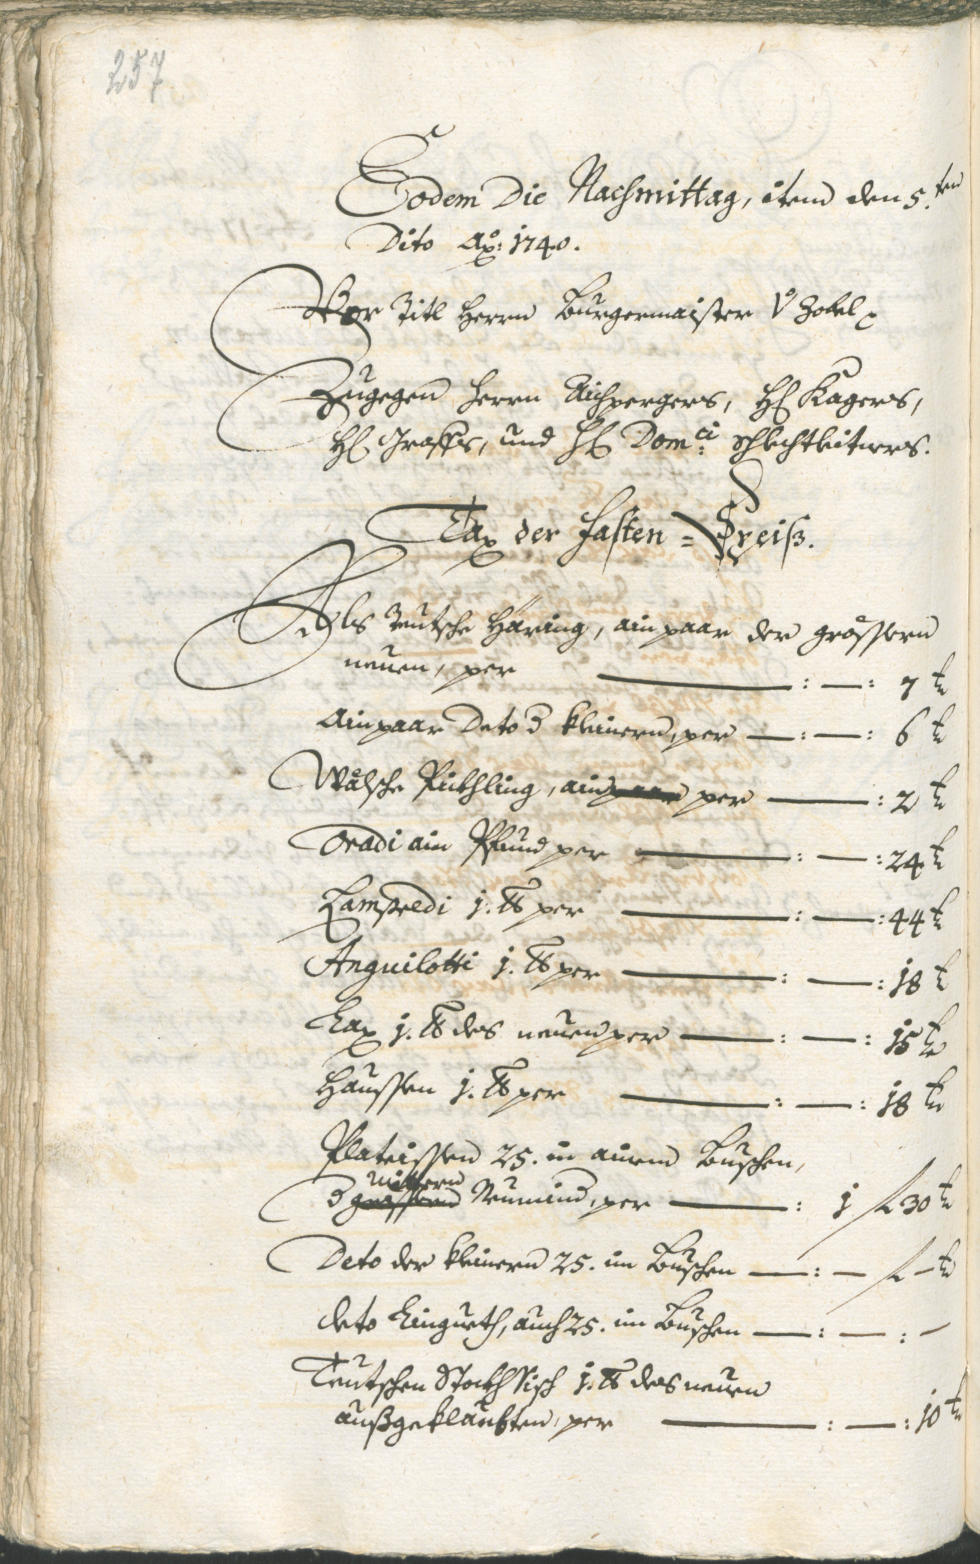 257
Eodem Die Nachmittag, item den 5.ten
Dito Ao: 1740.
Vor Titl Herrn Burgermaister V: Zobel
Zugegen Herrn Aichpergers, H: Kagers,
H: Graffs, und H: Domci: Schlechtleitners.
Tax der Fasten=Speiß.
Als Teutsche Häring, ain paar der grössern
neuen, per — : — : 7 kr
Ain paar Deto d kleinern, per — : — : 6 kr
Wälsche Pickhling, ain paar per — : 2 kr
Oradi ain Pfund per — : — : 24 kr
Lampredi j. ℔ per — : — : 44 kr
Anguilotti j. ℔ per — : — : j8 kr
Lax j. ℔ des neuen per — : — : j5 kr
Haussen j. ℔ per — : — : j8 kr
Plateissen 25. in ainem Buschen,
mittern
d grössern per — : j f 30 kr
Deto der kleinern 25. im Buschen — : — f — kr
deto auch 25. im Buschen — : — : —
Teutschen Stockhfisch j. ℔ des neuen
außgeklaubten, per — : — : j0 kr